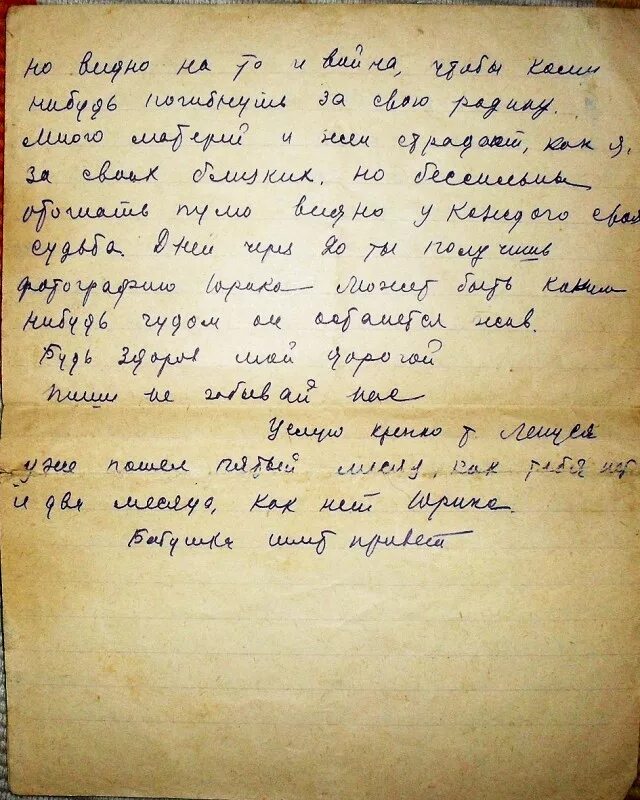 но видно на то и война, чтобы кому
нибудь погибнуть за свою родину.
Много матерей и жен страдают, как я,
за своих близких, но бессильны
отогнать пулю видно у каждого своя
судьба. Дней через 20 ты получишь
фотографию Юрика Может быть каким
нибудь чудом он останется жив.
Будь здоров мой дорогой
пиши не забывай нас
Целую крепко т. Ленуся
уже пошел пятый месяц, как тебя нет
и два месяца, как нет Юрика.
Бабушка шлет привет